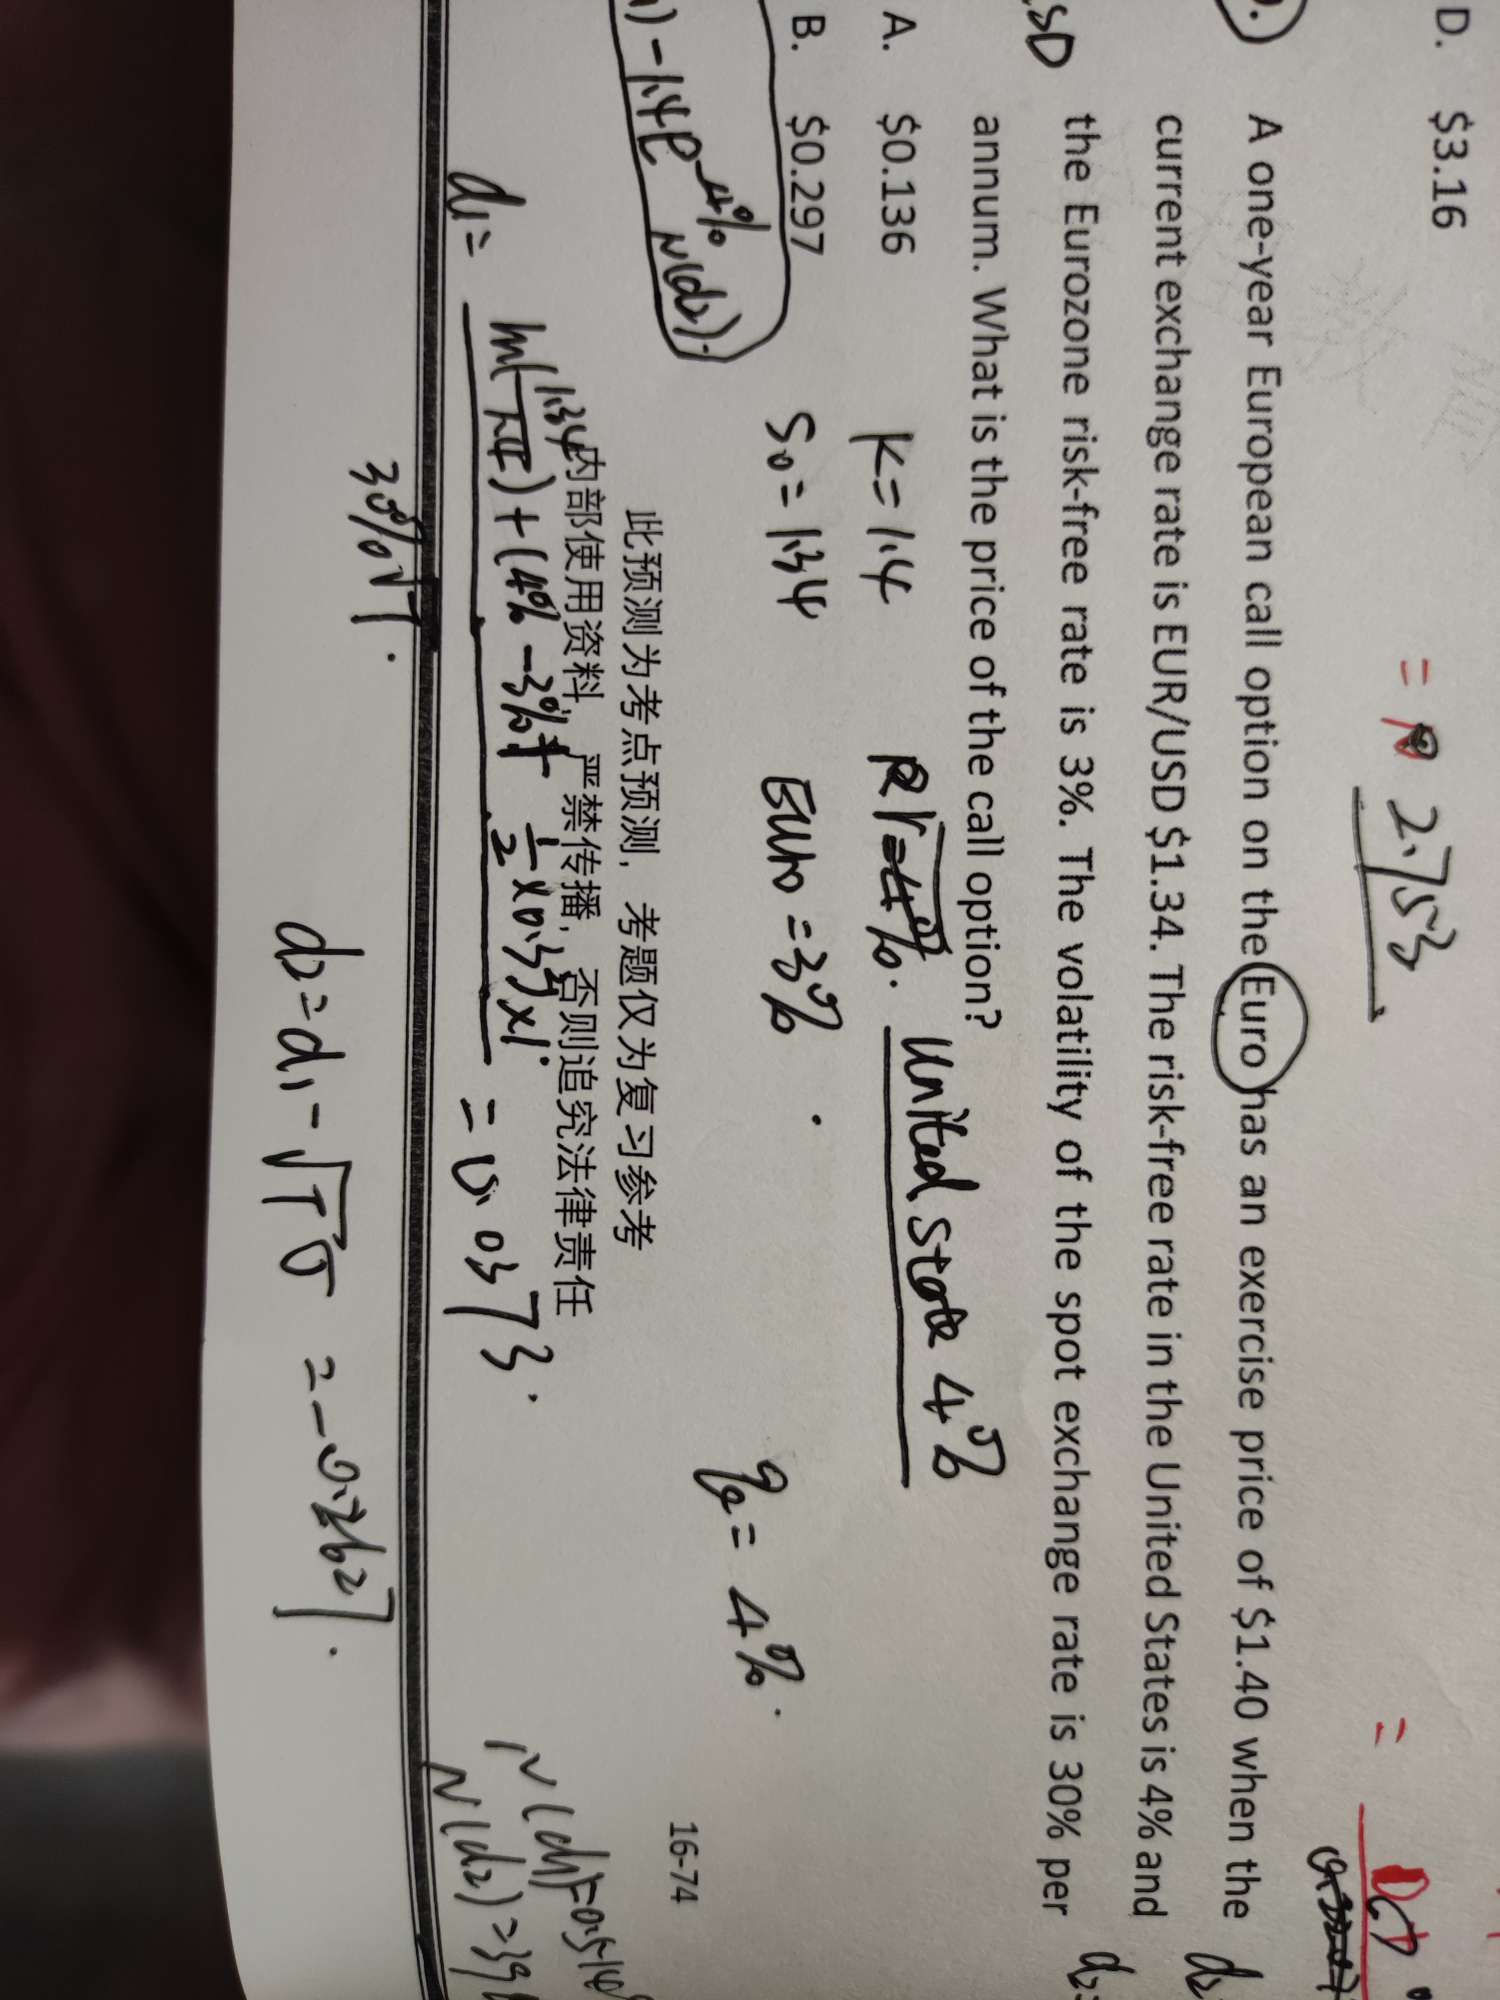 D. $3.16
= 2.753
=
A one-year European call option on the Euro has an exercise price of $1.40 when the
current exchange rate is EUR/USD $1.34. The risk-free rate in the United States is 4% and
the Eurozone risk-free rate is 3%. The volatility of the spot exchange rate is 30% per
annum. What is the price of the call option?
A. $0.136
K=1.4
r=4%.
United State 4%
B. $0.297
S0=1.34
Euro=3%
q=4%.
) - 1.4e-4% N(d2).
此预测为考点预测,考题仅为复习参考
内部使用资料,严禁传播,否则追究法律责任
16-74
d1= ln(1.34/1.4)+(4%-3%+ 1/2 ×0.3²)×1. = 0.0373.
30%√1.
N(d1)=0.5148
N(d2)=39
d2=d1-√Tσ = -0.2627.